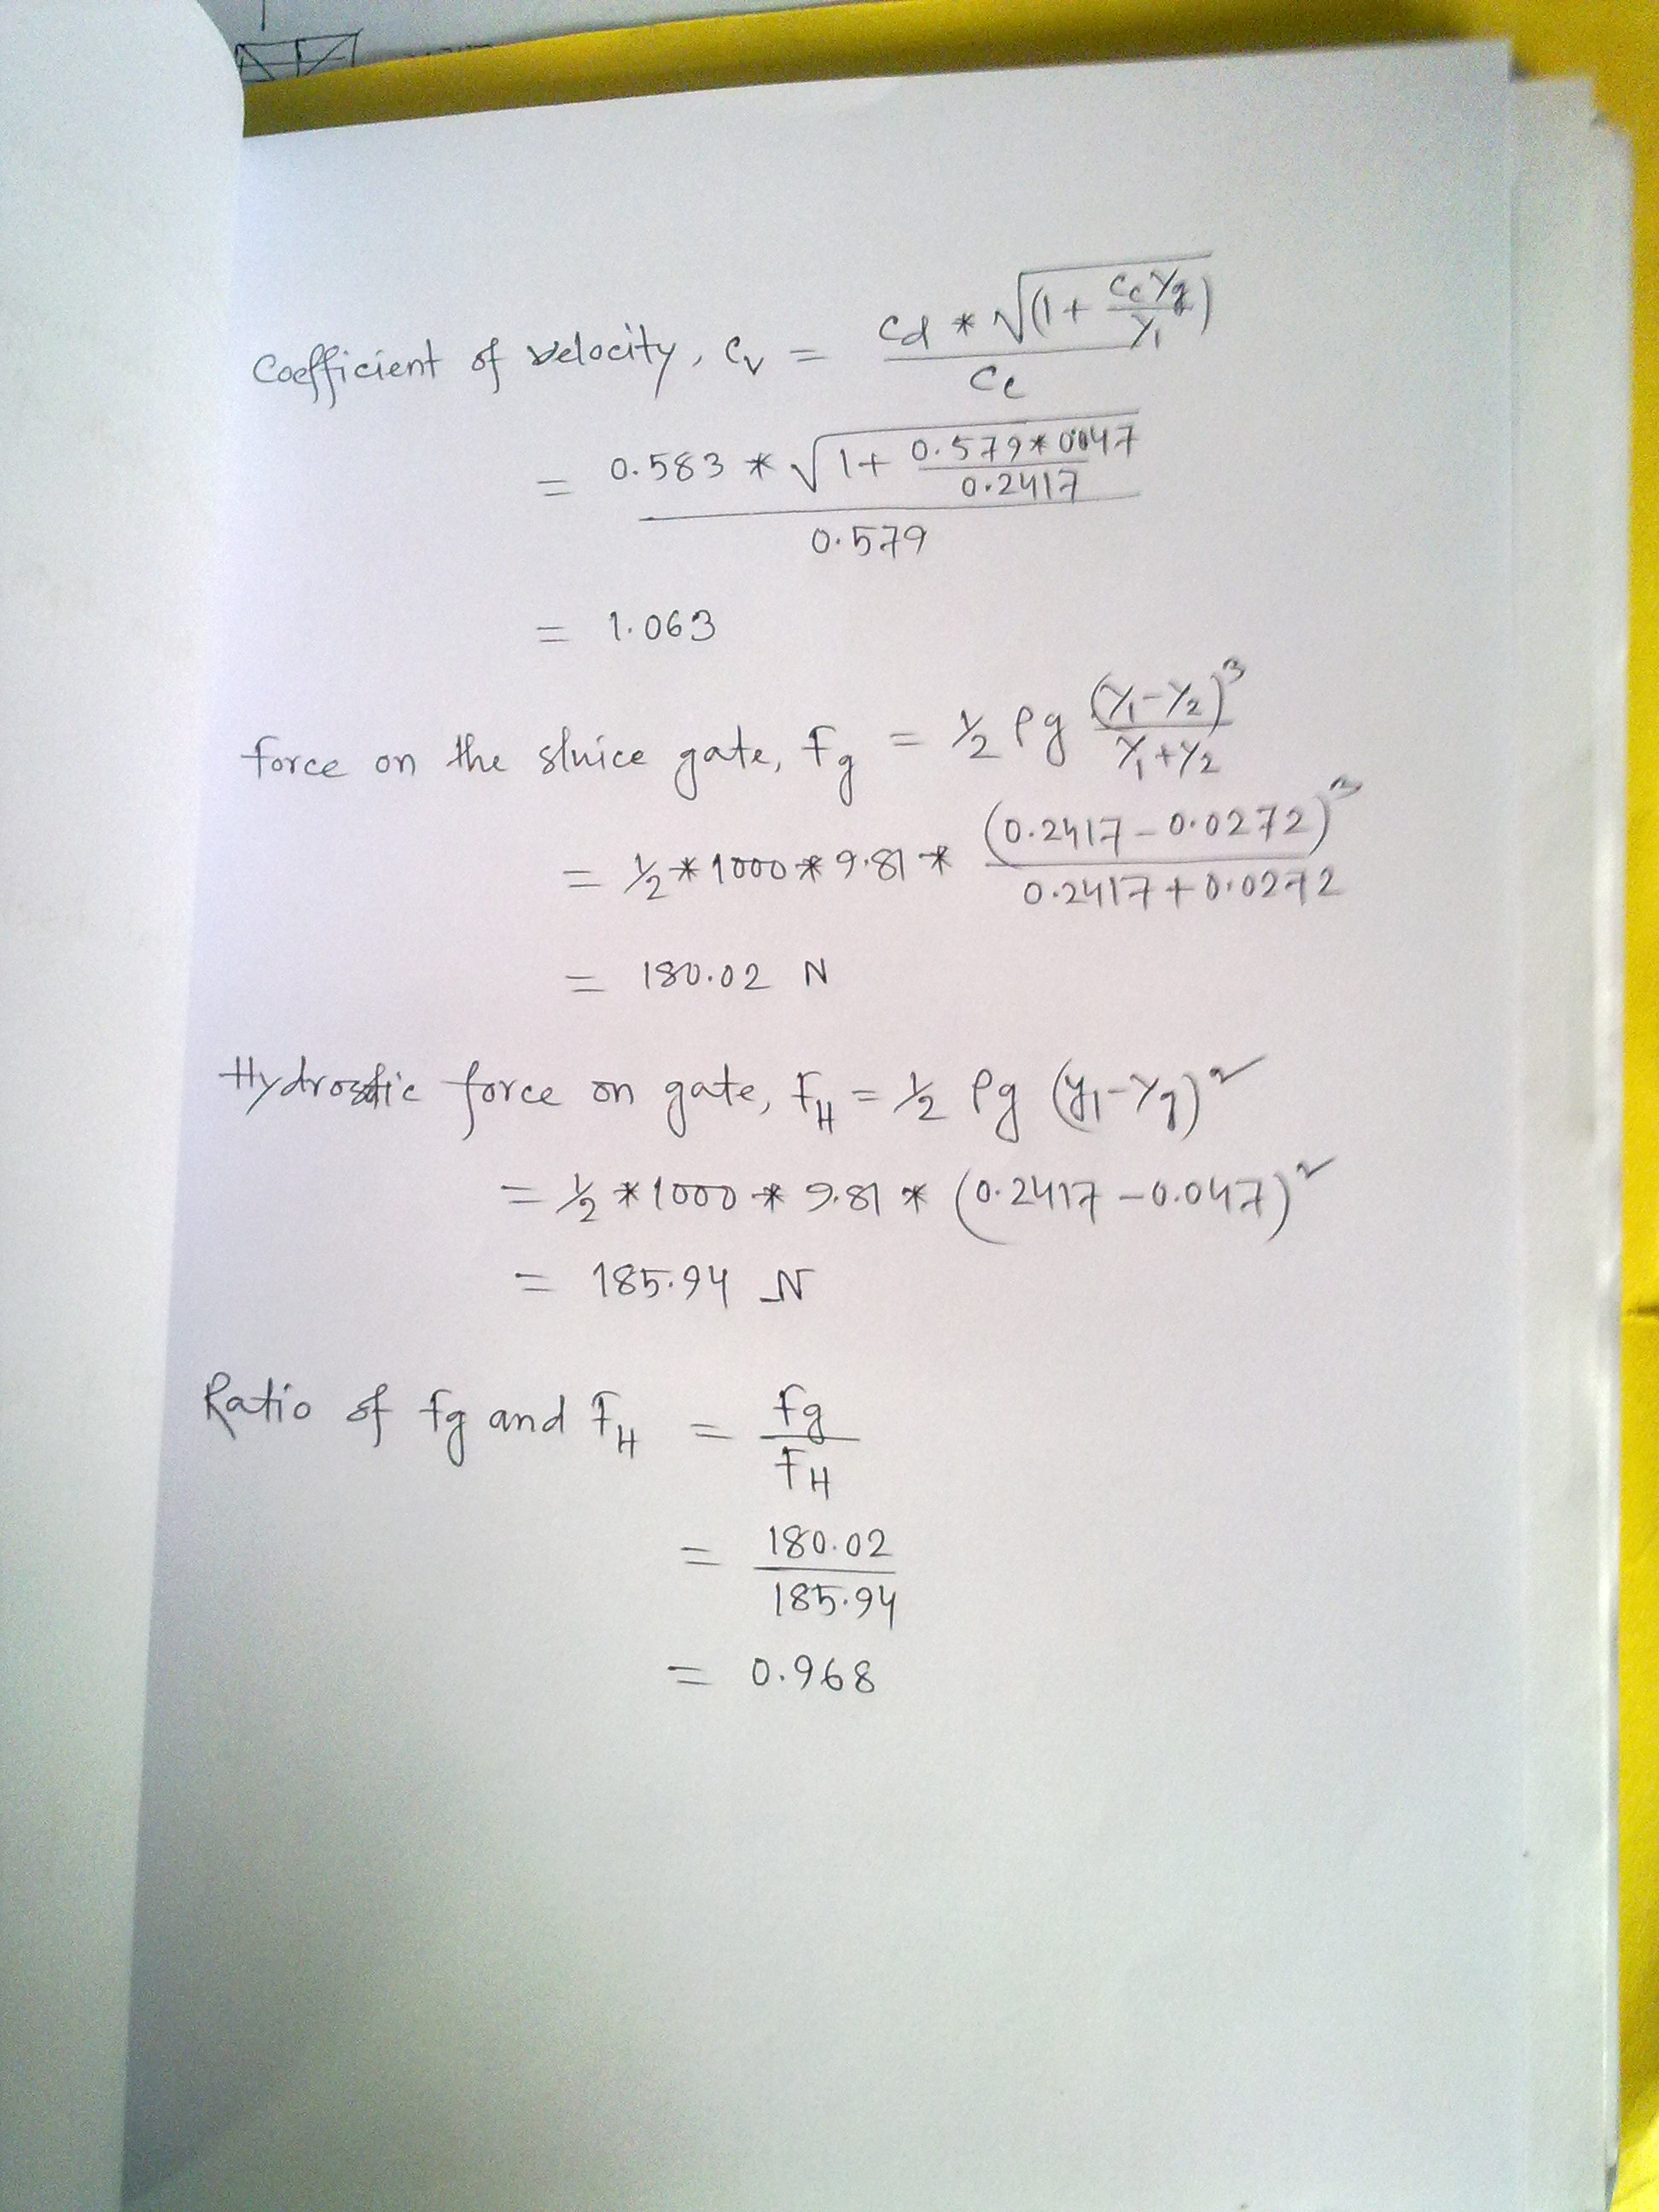 Coefficient of velocity, Cv = Cd * √(1 + CcYg/Y1) / Cc
= 0.583 * √1 + 0.579 * 0.047/0.2417 / 0.579
= 1.063
force on the sluice gate, Fg = 1/2 ρg (Y1-Y2)³/Y1+Y2
= 1/2 * 1000 * 9.81 * (0.2417 - 0.0272)³/0.2417 + 0.0272
= 180.02 N
Hydrostic force on gate, FH = 1/2 ρg (y1-Yg)²
= 1/2 * 1000 * 9.81 * (0.2417 - 0.047)²
= 185.94 N
Ratio of fg and FH = fg/FH
= 180.02/185.94
= 0.968